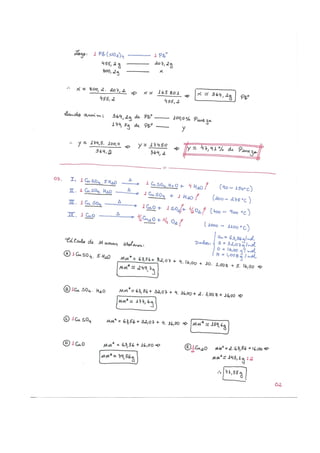 Logo: 1 Pb(SO4)2 —— 1 Pb°
455,2g —— 207,2g
800,2g —— x
∴ x = 800,2 . 207,2 / 455,2 ⇒ x = 165801 / 455,2 ⇒ x ≅ 364,2g Pb°
364,2g de Pb° —— 100,0% Pureza
174,5g de Pb° —— y
∴ y = 174,5 . 100,0 / 364,2 ⇒ y = 17450 / 364,2 ⇒ y ≅ 47,91% de Pureza
03. I. 1 CuSO4 . 5 H2O Δ→ 1 CuSO4 . H2O + 4 H2O↑ (90 – 150°C)
II. 1 CuSO4 . H2O Δ→ 1 CuSO4 + 1 H2O↑ (200 – 275°C)
III. 1 CuSO4 Δ→ 1 CuO + 1 SO2↑ + 1/2 O2↑ (700 – 900°C)
IV. 1 CuO Δ→ 1/2 Cu2O + 1/4 O2↑ (1000 – 1100°C)
Cálculo de massas molares:
Dados: Cu = 63,56g/mol
S = 32,07g/mol
O = 16,00g/mol
H = 1,008g/mol
Ⓐ 1 CuSO4 . 5 H2O MM° = 63,56 + 32,07 + 4.16,00 + 10.1,008 + 5.16,00 ⇒
MM° = 249,7g
Ⓑ 1 CuSO4 . H2O MM° = 63,56 + 32,07 + 4.16,00 + 2.1,008 + 16,00 ⇒
MM° = 177,6g
Ⓒ 1 CuSO4 MM° = 63,56 + 32,07 + 4.16,00 ⇒ MM° = 159,6g
Ⓓ 1 CuO MM° = 63,56 + 16,00 ⇒
MM° = 79,56g
Ⓔ 1/2 Cu2O MM° = 2.63,56 + 16,00 ⇒
MM° = 143,1g :2
∴ 71,55g
02